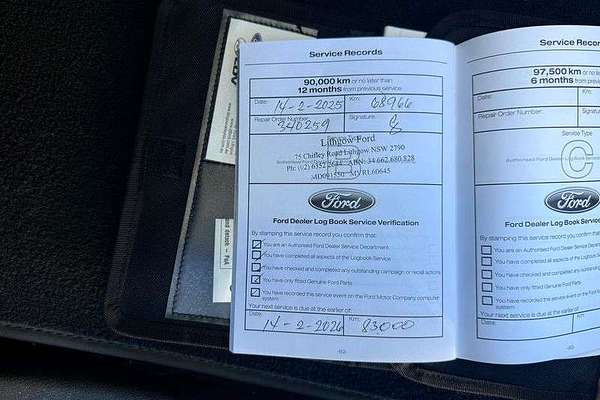 Service Records
90,000 km or no later than
12 months from previous service
Date: 14-2-2025 Km: 68966
Repair Order Number: 340259 Signature:
Lithgow Ford
75 Chifley Road Lithgow NSW 2790
Ph: (02) 6352 2644 ABN: 34 662 680 828
MD091550 MVRL60645
Ford
Ford Dealer Log Book Service Verification
By stamping this service record you confirm that:
You are an Authorised Ford Dealer Service Department
You have completed all aspects of the Logbook Service
You have checked and completed any outstanding campaign or recall actions
You have only fitted Genuine Ford Parts
You have recorded the service event on the Ford Motor Company computer
system
Your next service is due at the earlier of:
Date: 14-2-2026 Km: 83000
Service Reco
97,500 km or no
6 months from previo
Date:
Repair Order Number:
Service Type
C
Authorised Ford Dealer
Ford
Ford Dealer Log Book Service
By stamping this service record you confirm that:
You are an Authorised Ford Dealer Servic
You have completed all aspects of the Log
You have checked and completed any outs
You have only fitted Genuine Ford Parts
You have recorded the service event on the F
system
Your next service is due at the earlier of:
Date: